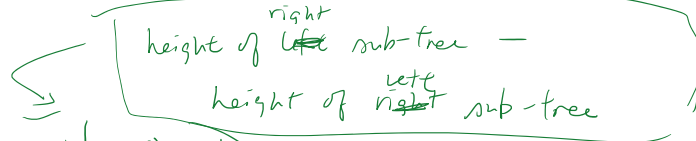 height of right sub-tree —
height of left sub-tree